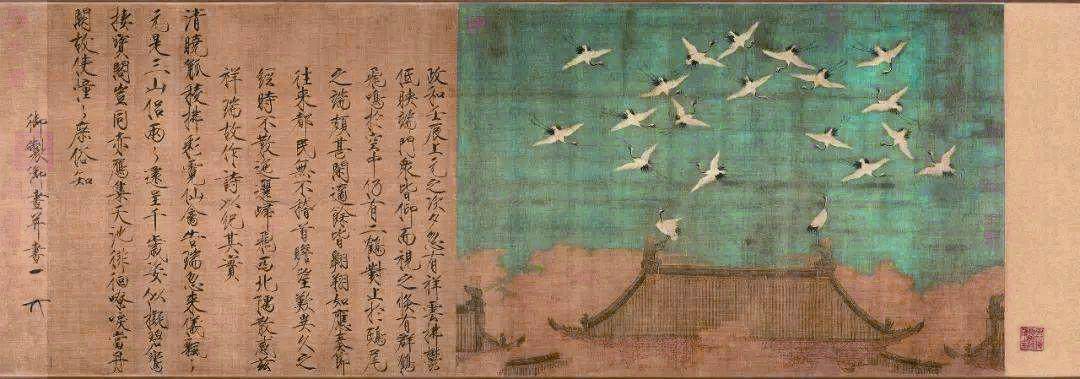 政和壬辰上元之次夕忽有祥雲拂鬱
低映端門眾皆仰而視之倏有群鶴
飛鳴於空中仍有二鶴對止於鴟尾
之端頗甚閒適餘皆翱翔如應奏節
往來都民無不稽首瞻望歎異久之
經時不散迤邐歸飛西北隅散感茲
祥瑞故作詩以紀其實
清曉觚稜拂彩霓仙禽告瑞忽來儀飄〻
元是三山侶兩〻還呈千歲姿似擬碧鸞
棲寶閣豈同赤鴈集天池徘徊嘹唳當丹
闕故使憧〻庶俗知
御製御畫并書